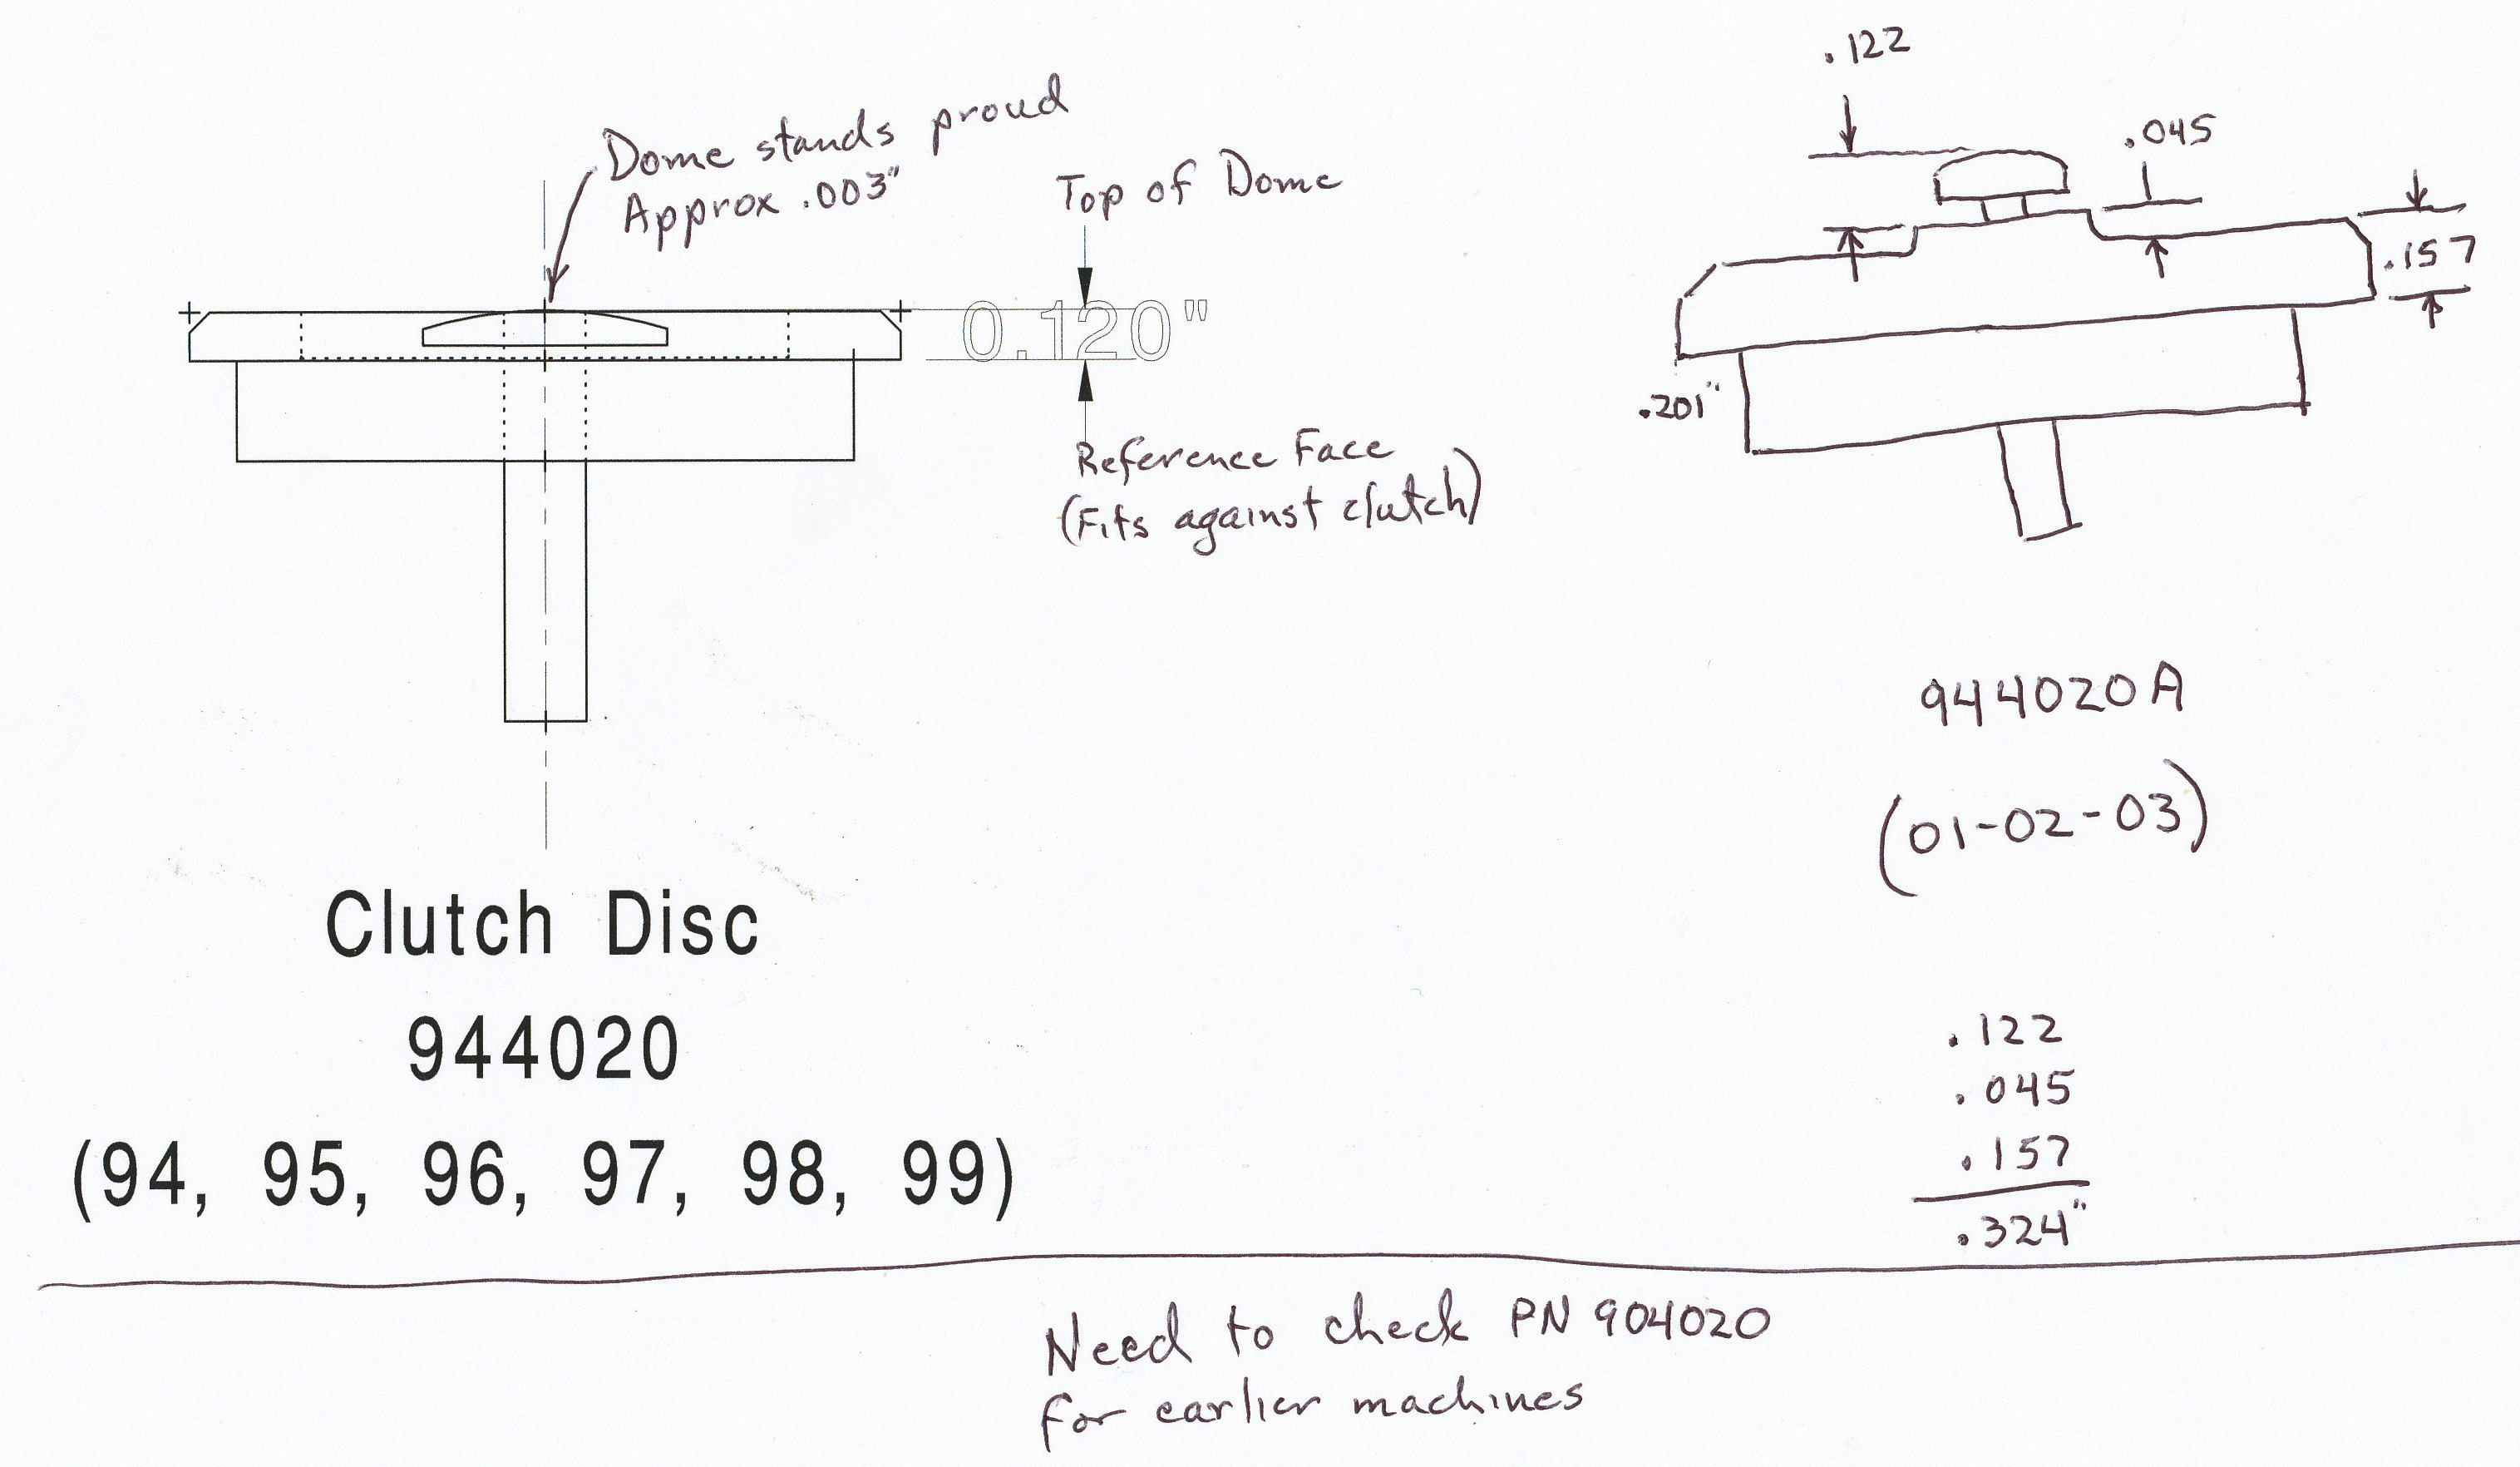 Dome stands proud
Approx .003"
Top of Dome
0.120"
Reference Face
(Fits against clutch)
Clutch Disc
944020
(94, 95, 96, 97, 98, 99)
.122
.045
.157
.201"
944020A
(01-02-03)
.122
.045
.157
.324"
Need to check PN 904020
for earlier machines